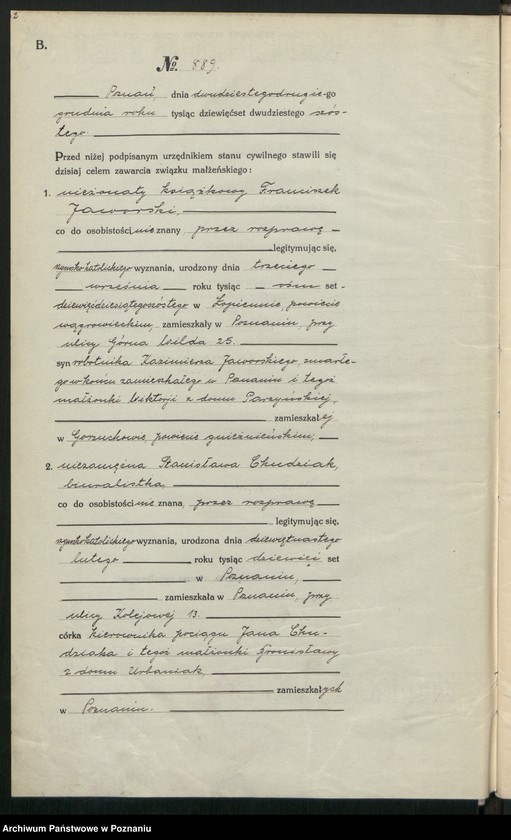 2
B.
№. 889.
Poznań, dnia dwudziestegodrugiego
grudnia roku tysiąc dziewięćset dwudziestego szós-
tego.
Przed niżej podpisanym urzędnikiem stanu cywilnego stawili się
dzisiaj celem zawarcia związku małżeńskiego:
1. nieżonaty książkowy Franciszek
Jaworski,
co do osobistości nie znany, przez rozprawę
legitymując się,
rzymsko katolickiego wyznania, urodzony dnia trzeciego
września roku tysiąc ośm set
dziewięćdziesiątegoszóstego w Łopiennie, powiecie
wągrowieckim, zamieszkały w Poznaniu, przy
ulicy Górna Wilda 25.
syn robotnika Kazimierza Jaworskiego, zmarłe-
go w końcu zamieszkałego w Poznaniu i tegoż
małżonki Wiktorji z domu Parzyńskiej,
zamieszkałej
w Gorzuchowie, powiecie gnieźnieńskim,
2. niezamężna Stanisława Chudziak,
biuralistka,
co do osobistości nie znana, przez rozprawę
legitymując się,
rzymsko katolickiego wyznania, urodzona dnia dziewiętnastego
lutego roku tysiąc dziewięć set
w Poznaniu,
zamieszkała w Poznaniu, przy
ulicy Kolejowej 13.
córka kierownika pociągu Jana Chu-
dziaka i tegoż małżonki Bronisławy
z domu Urbaniak,
zamieszkałych
w Poznaniu.
Archiwum Państwowe w Poznaniu